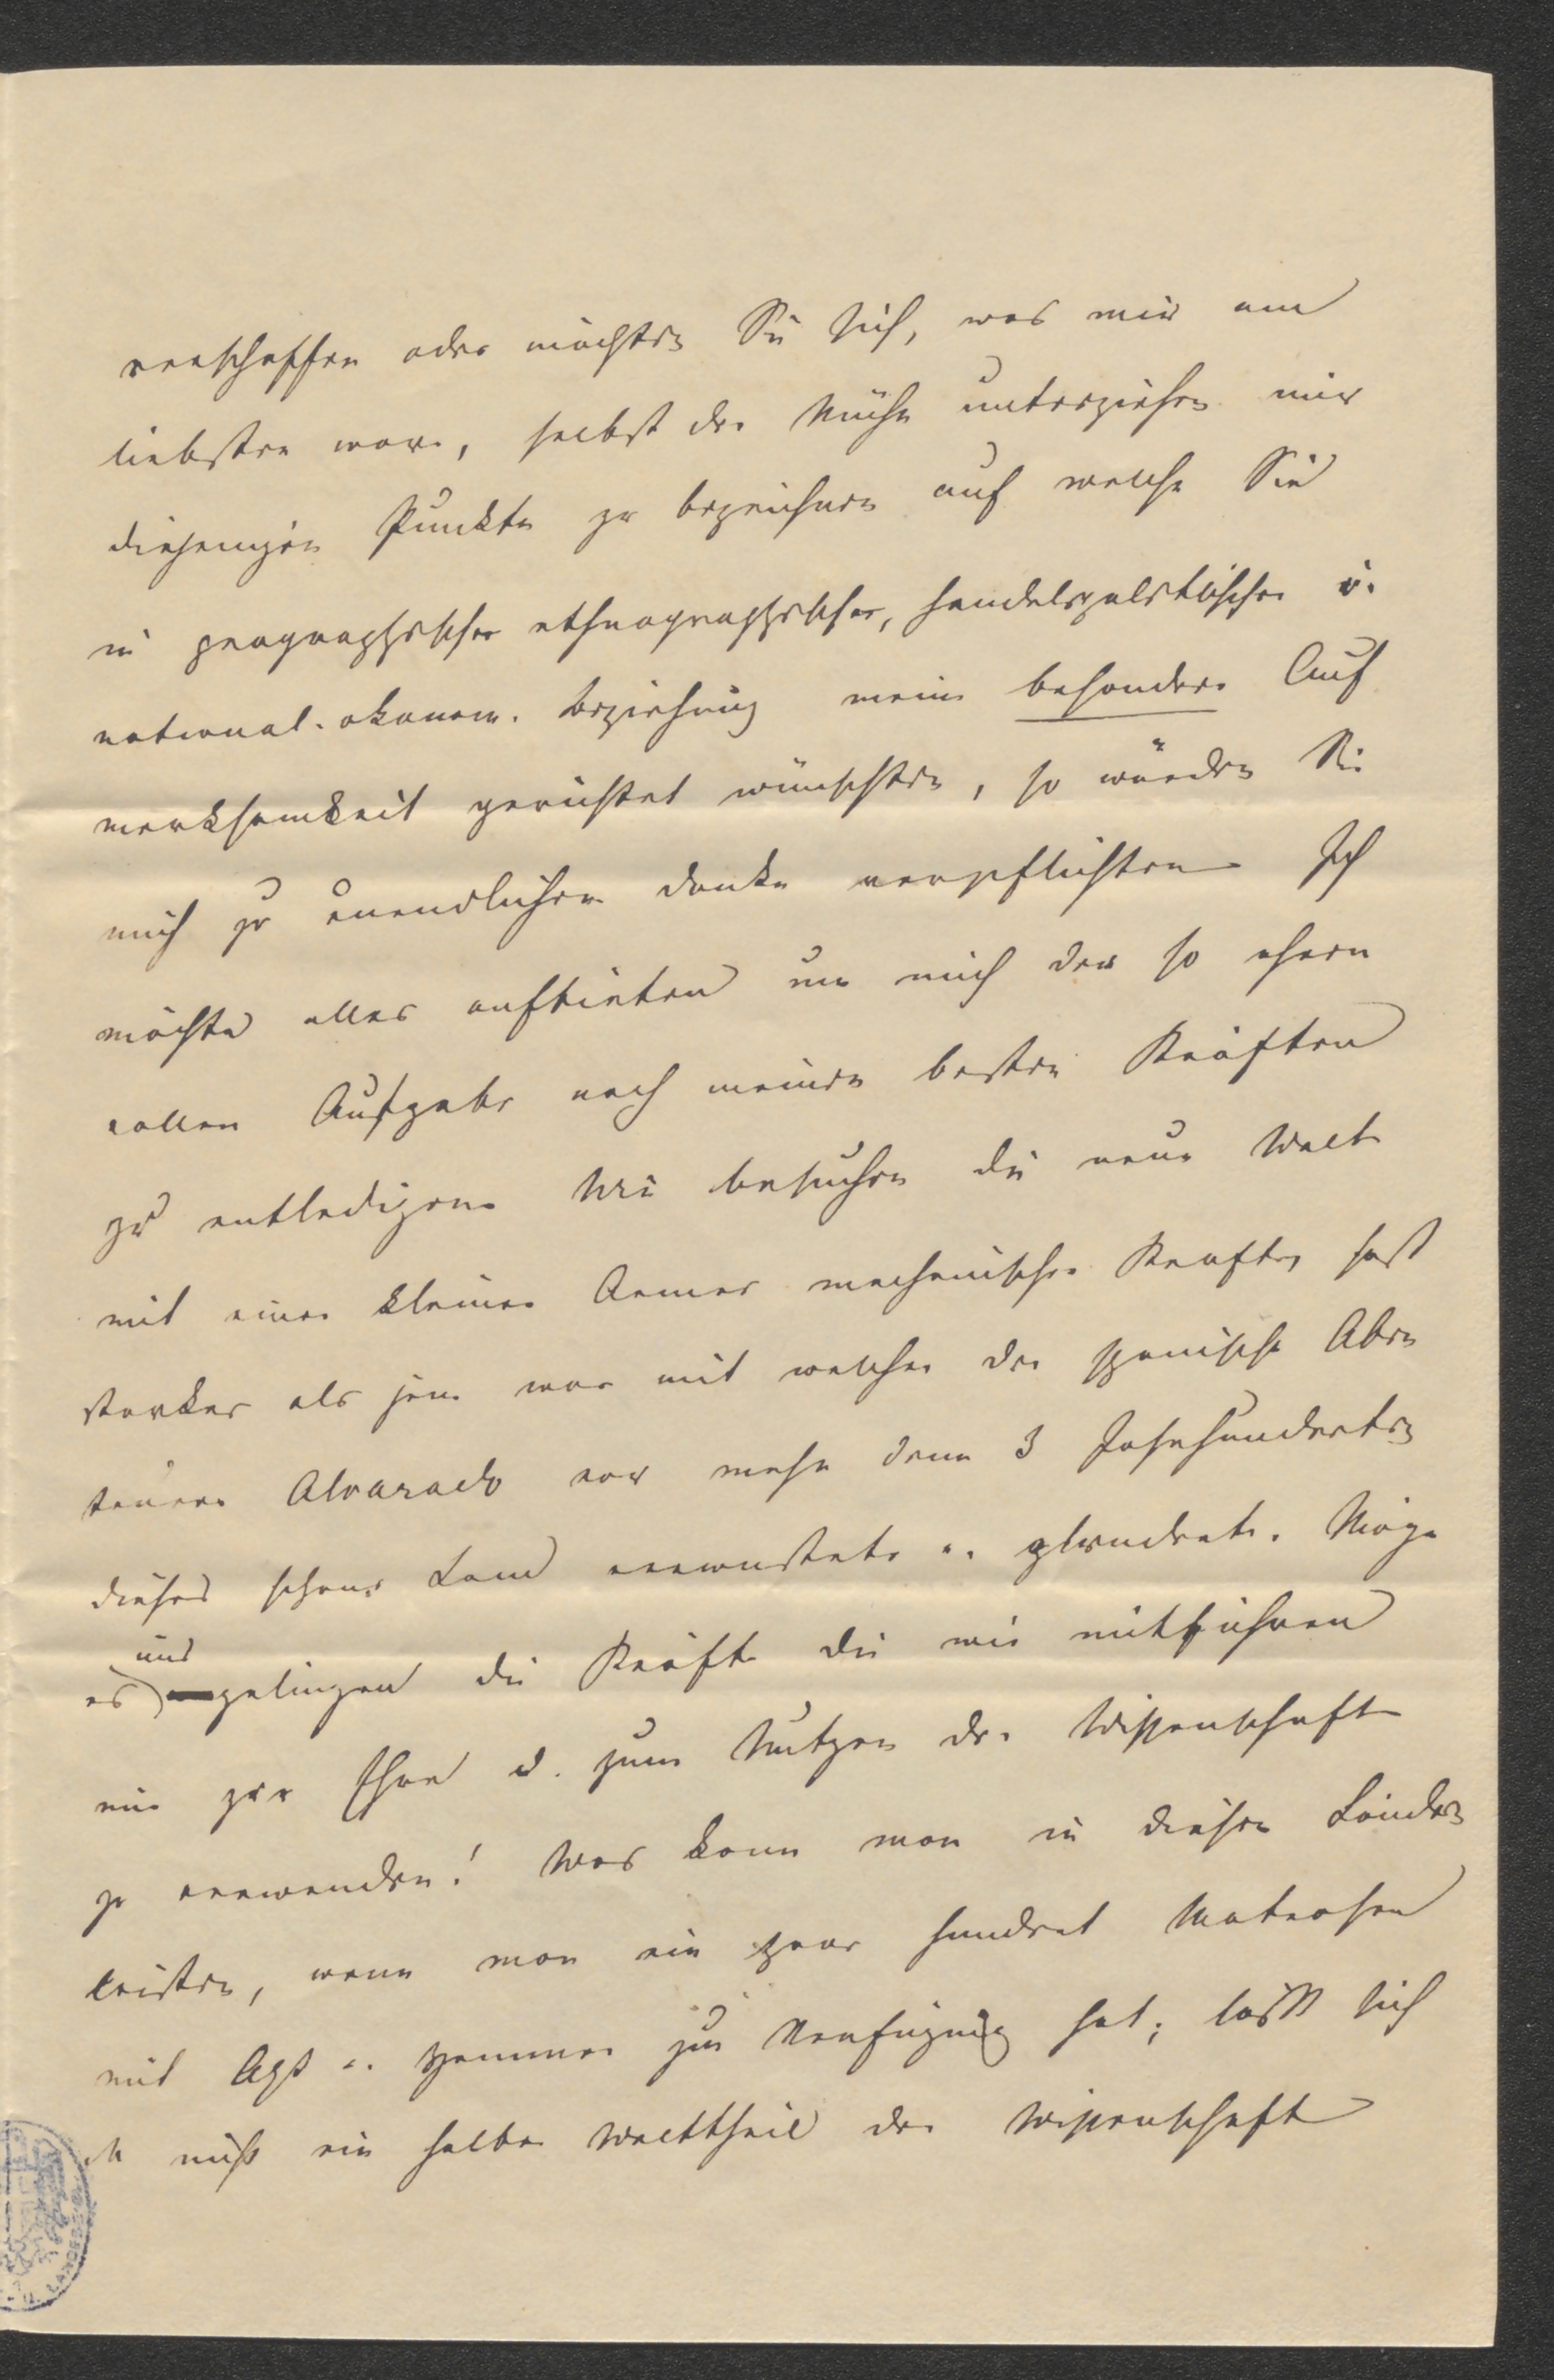 verschaffen oder möchten Sie sich, was mir am
liebsten wäre, selbst der Mühe unterziehen mir
diejenigen Punkte zu bezeichnen auf welche Sie
in geographischer ethnographischer, handelspolitischer u.
national-ökonom. Beziehung meine besondere Auf
merksamkeit gerichtet wünschten, so würden Sie
mich zu unendlichem Danke verpflichten Ich
möchte alles aufbieten um mich der so ehren
vollen Aufgabe nach meinen besten Kräften
zu entledigen. Wir besuchen die neue Welt
mit einer kleinen Armee mechanischer Kräfte, fast
starker als jene war mit welcher der spanische Aben
teurer Alvarado vor mehr denn 3 Jahrhunderten
dieses schöne Land verwüstete u. plünderte. Möge
es uns gelingen die Kräfte die wir mitführen
nur zur Ehre u. zum Nutzen der Wissenschaft
zu verwenden! Was kann man in diesen Ländern
leisten, wenn man ein paar hundert Matrosen
mit Axt u. Hammer zur Verfügung hat; läßt sich
nicht ein halber Welttheil der Wissenschaft